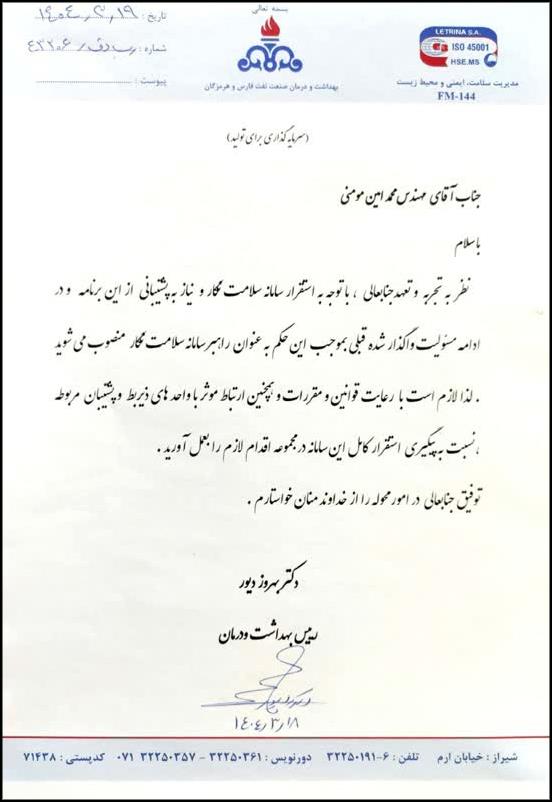 بسمه تعالی
تاریخ : ۱۴۰۴٫۳٫۱۹
شماره : ۴۳۲۰۶
پیوست :
بهداشت و درمان صنعت نفت فارس و هرمزگان
LETRINA S.A.
ISO 45001
HSE.MS
مدیریت سلامت، ایمنی و محیط زیست
FM-144
(سرمایه گذاری برای تولید)
جناب آقای مهندس محمد امین مومنی
باسلام
نظر به تجربه و تعهد جنابعالی ، با توجه به استقرار سامانه سلامت همکار و نیاز به پشتیبانی از این برنامه و در
ادامه مسئولیت واگذار شده قبلی بموجب این حکم به عنوان راهبر سامانه سلامت همکار منصوب می شوید
. لذا لازم است با رعایت قوانین و مقررات و همچنین ارتباط موثر با واحد های ذیربط و پشتیبان مربوطه
، نسبت به پیگیری استقرار کامل این سامانه در مجموعه اقدام لازم را بعمل آورید .
توفیق جنابعالی در امور محوله را از خداوند منان خواستارم .
دکتر بهروز دیور
رییس بهداشت ودرمان
۱۴۰۴/۳/۱۸
شیراز : خیابان ارم تلفن : ۶-۳۲۲۵۰۱۹۱ دورنویس : ۳۲۲۵۰۳۶۱ - ۳۲۲۵۰۳۵۷ ۰۷۱ کدپستی : ۷۱۴۳۸